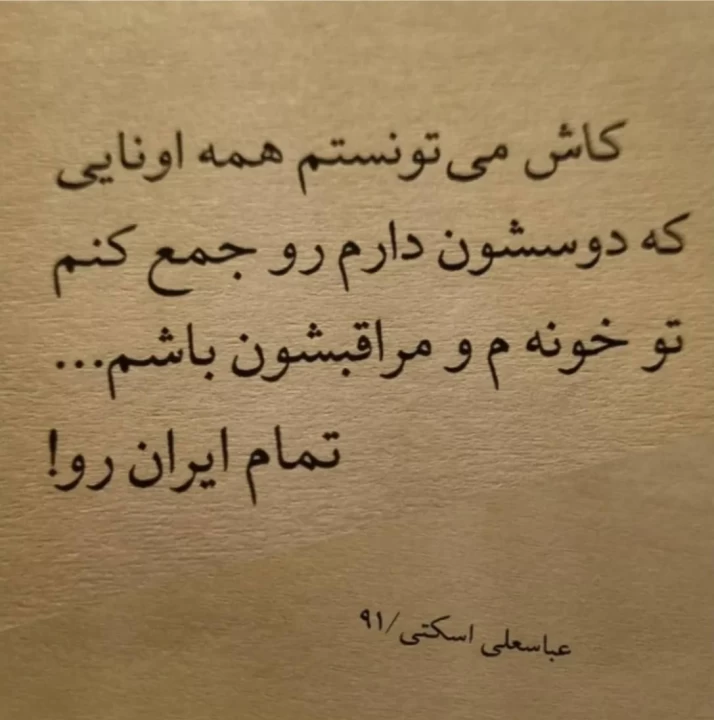 کاش می‌تونستم همه اونایی
که دوسشون دارم رو جمع کنم
تو خونه م و مراقبشون باشم...
تمام ایران رو!
عباسعلی اسکتی/۹۱